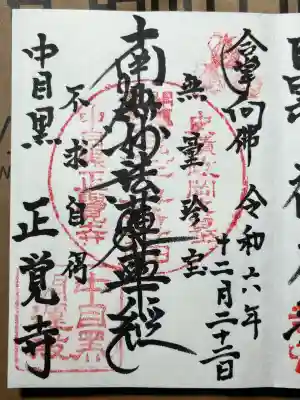 合掌向佛
令和六年
十二月二十二日
無量珍宝
南無妙法蓮華経
不求自得
中目黒
正覚寺